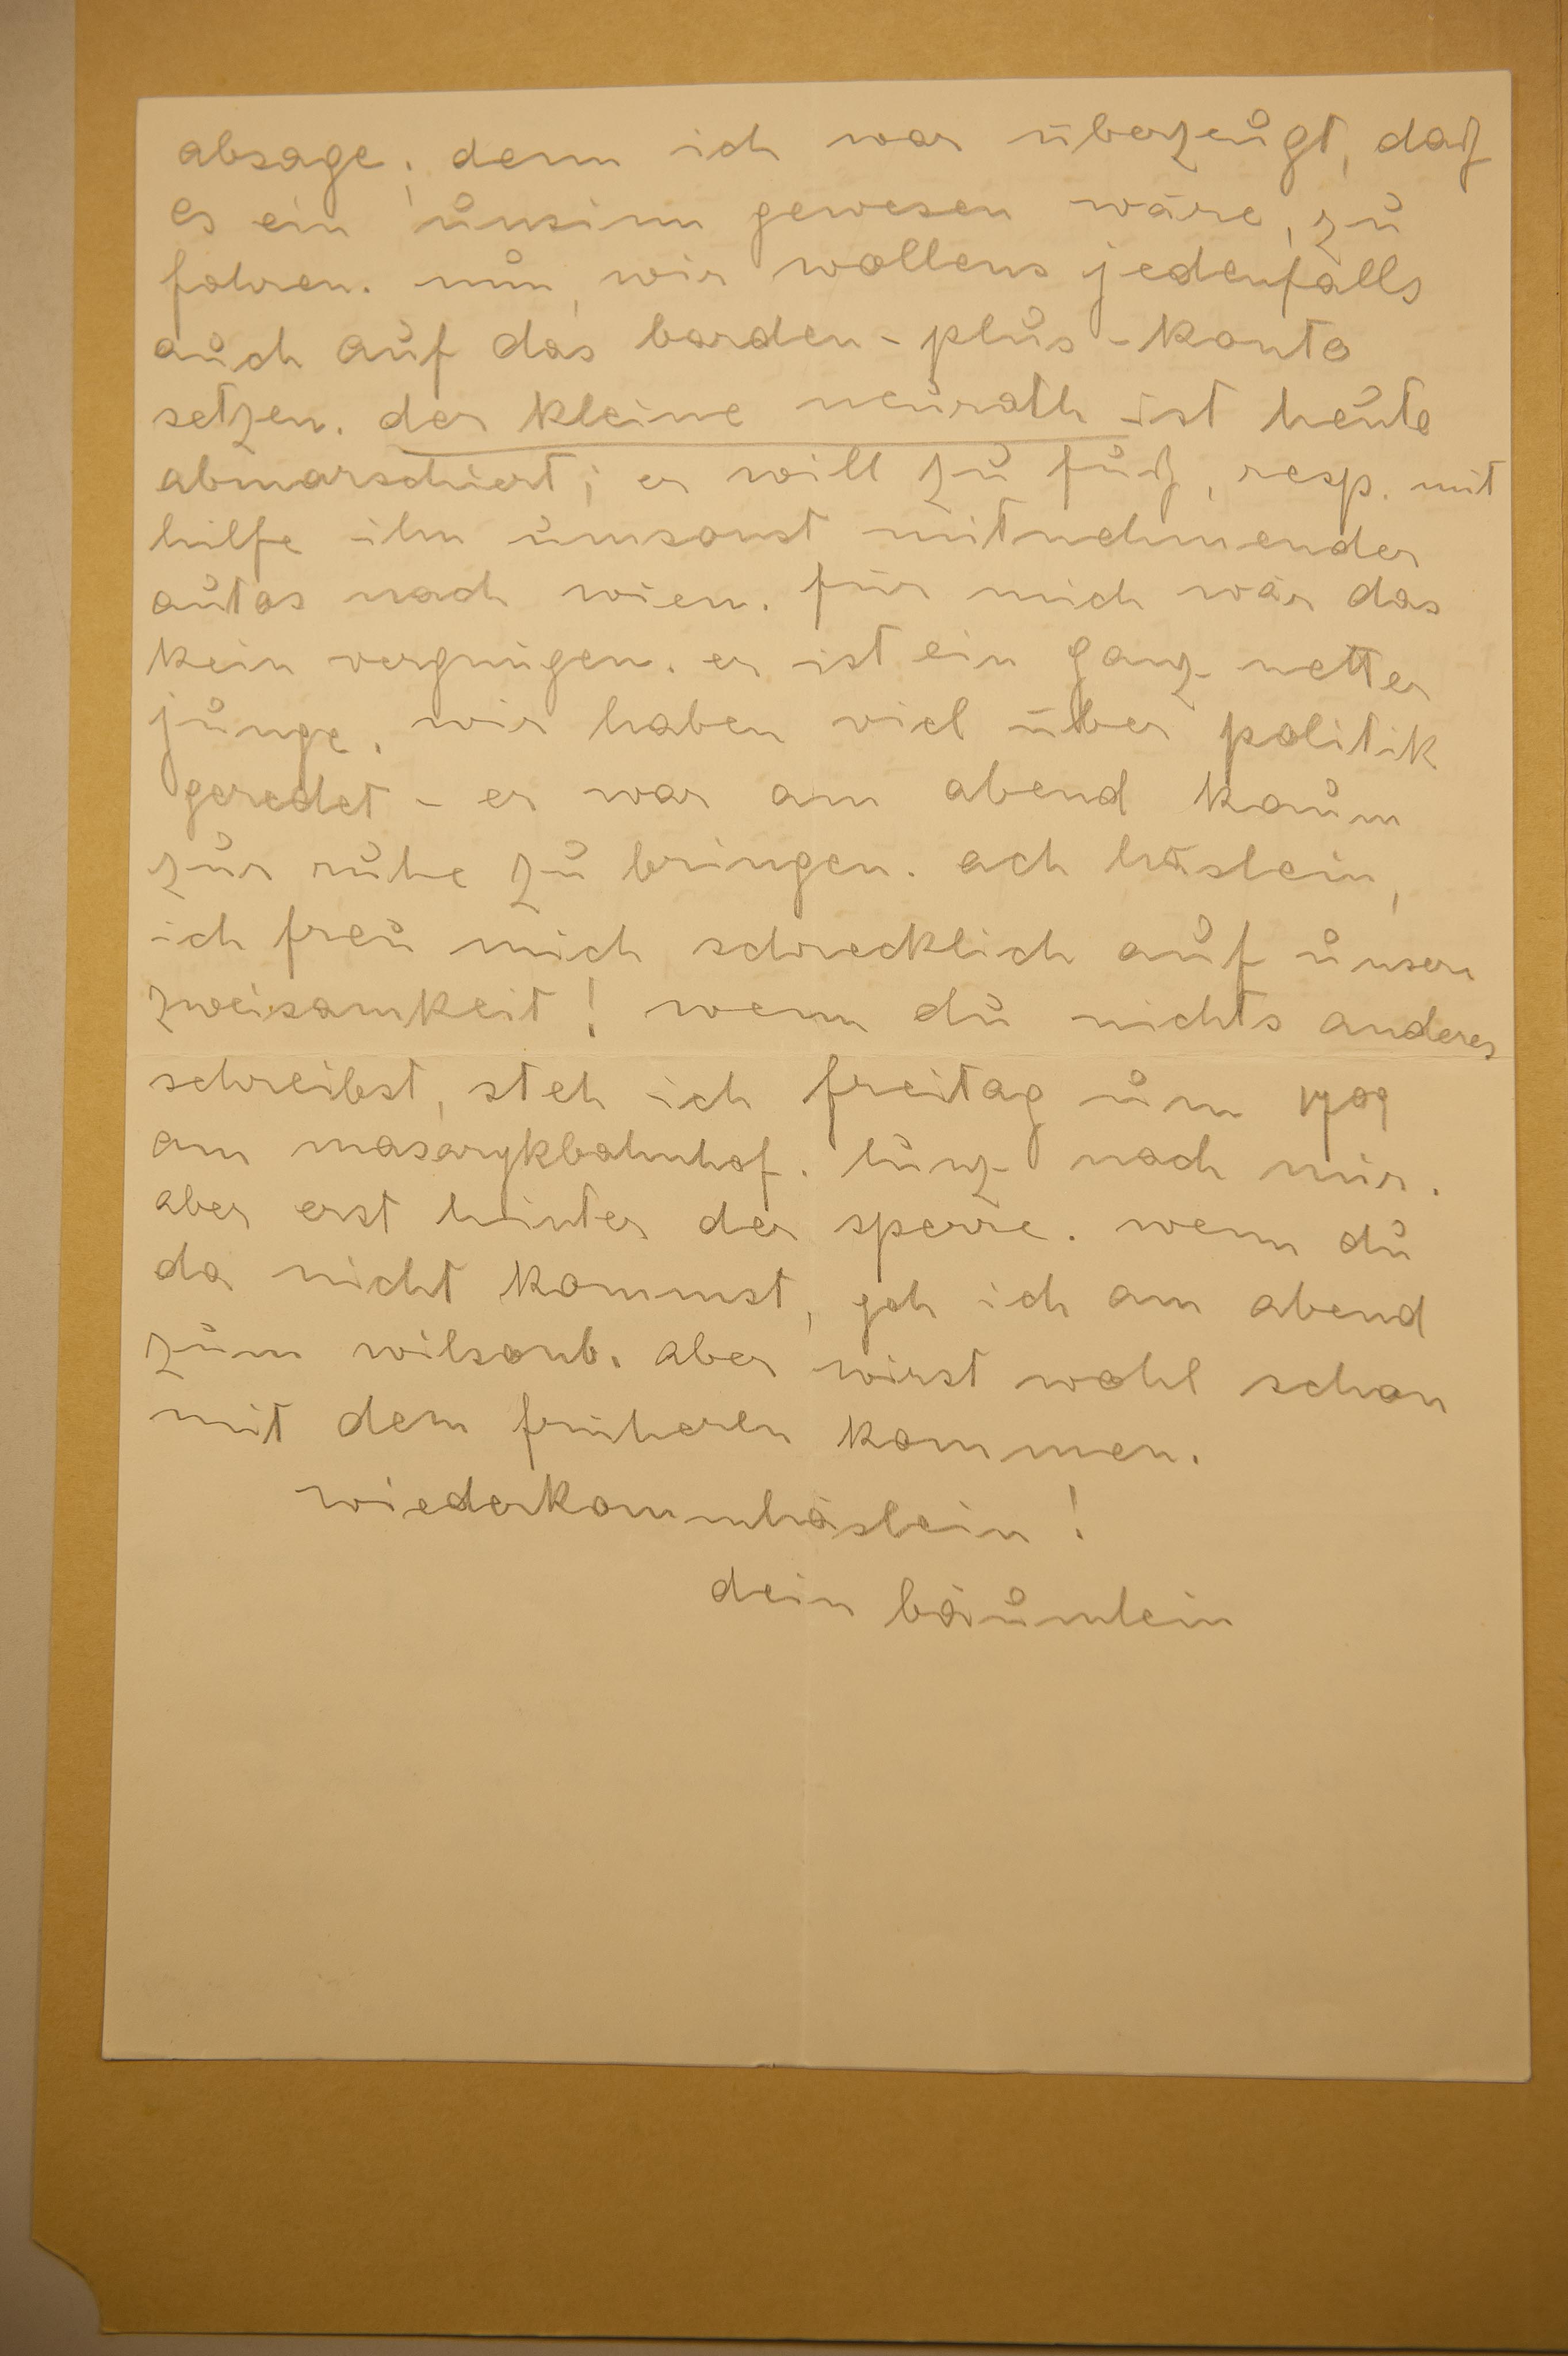 absage; denn ich war überzeugt, daß
es ein unsinn gewesen wäre, zu
fahren. nun, wir wollens jedenfalls
auch auf das borden-plus-konto
setzen. der kleine neurath ist heute
abmarschiert; er will zu fuß, resp. mit
hilfe ihn umsonst mitnehmender
autos nach wien. für mich wär das
kein vergnügen. er ist ein ganz netter
junge. wir haben viel über politik
geredet - er war am abend kaum
zur ruhe zu bringen. ach häslein,
ich freu mich schrecklich auf unsere
zweisamkeit! wenn du nichts anderes
schreibst, steh ich freitag um 1709
am masarykbahnhof. lunz nach mir.
aber erst hinter der sperre. wenn du
da nicht kommst, geh ich am abend
zum wilsonb. aber wirst wohl schon
mit dem früheren kommen.
wiederkommhäslein!
dein bäumlein